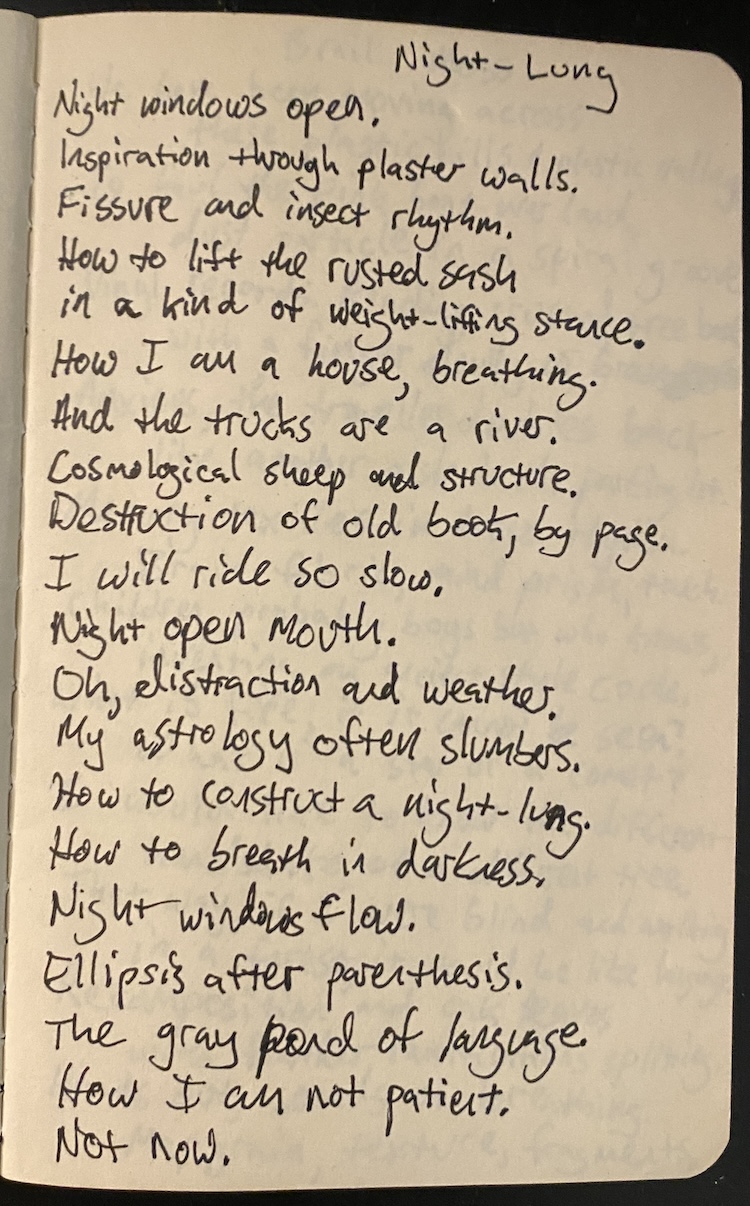 Night-Lung
Night windows open.
Inspiration through plaster walls.
Fissure and insect rhythm.
How to lift the rusted sash
in a kind of weight-lifting stance.
How I am a house, breathing.
And the trucks are a river.
Cosmological sheep and structure.
Destruction of old book, by page.
I will ride so slow.
Night open mouth.
Oh, distraction and weather.
My astrology often slumbers.
How to construct a night-lung.
How to breath in darkness.
Night windows flow.
Ellipsis after parenthesis.
The gray pond of language.
How I am not patient.
Not now.